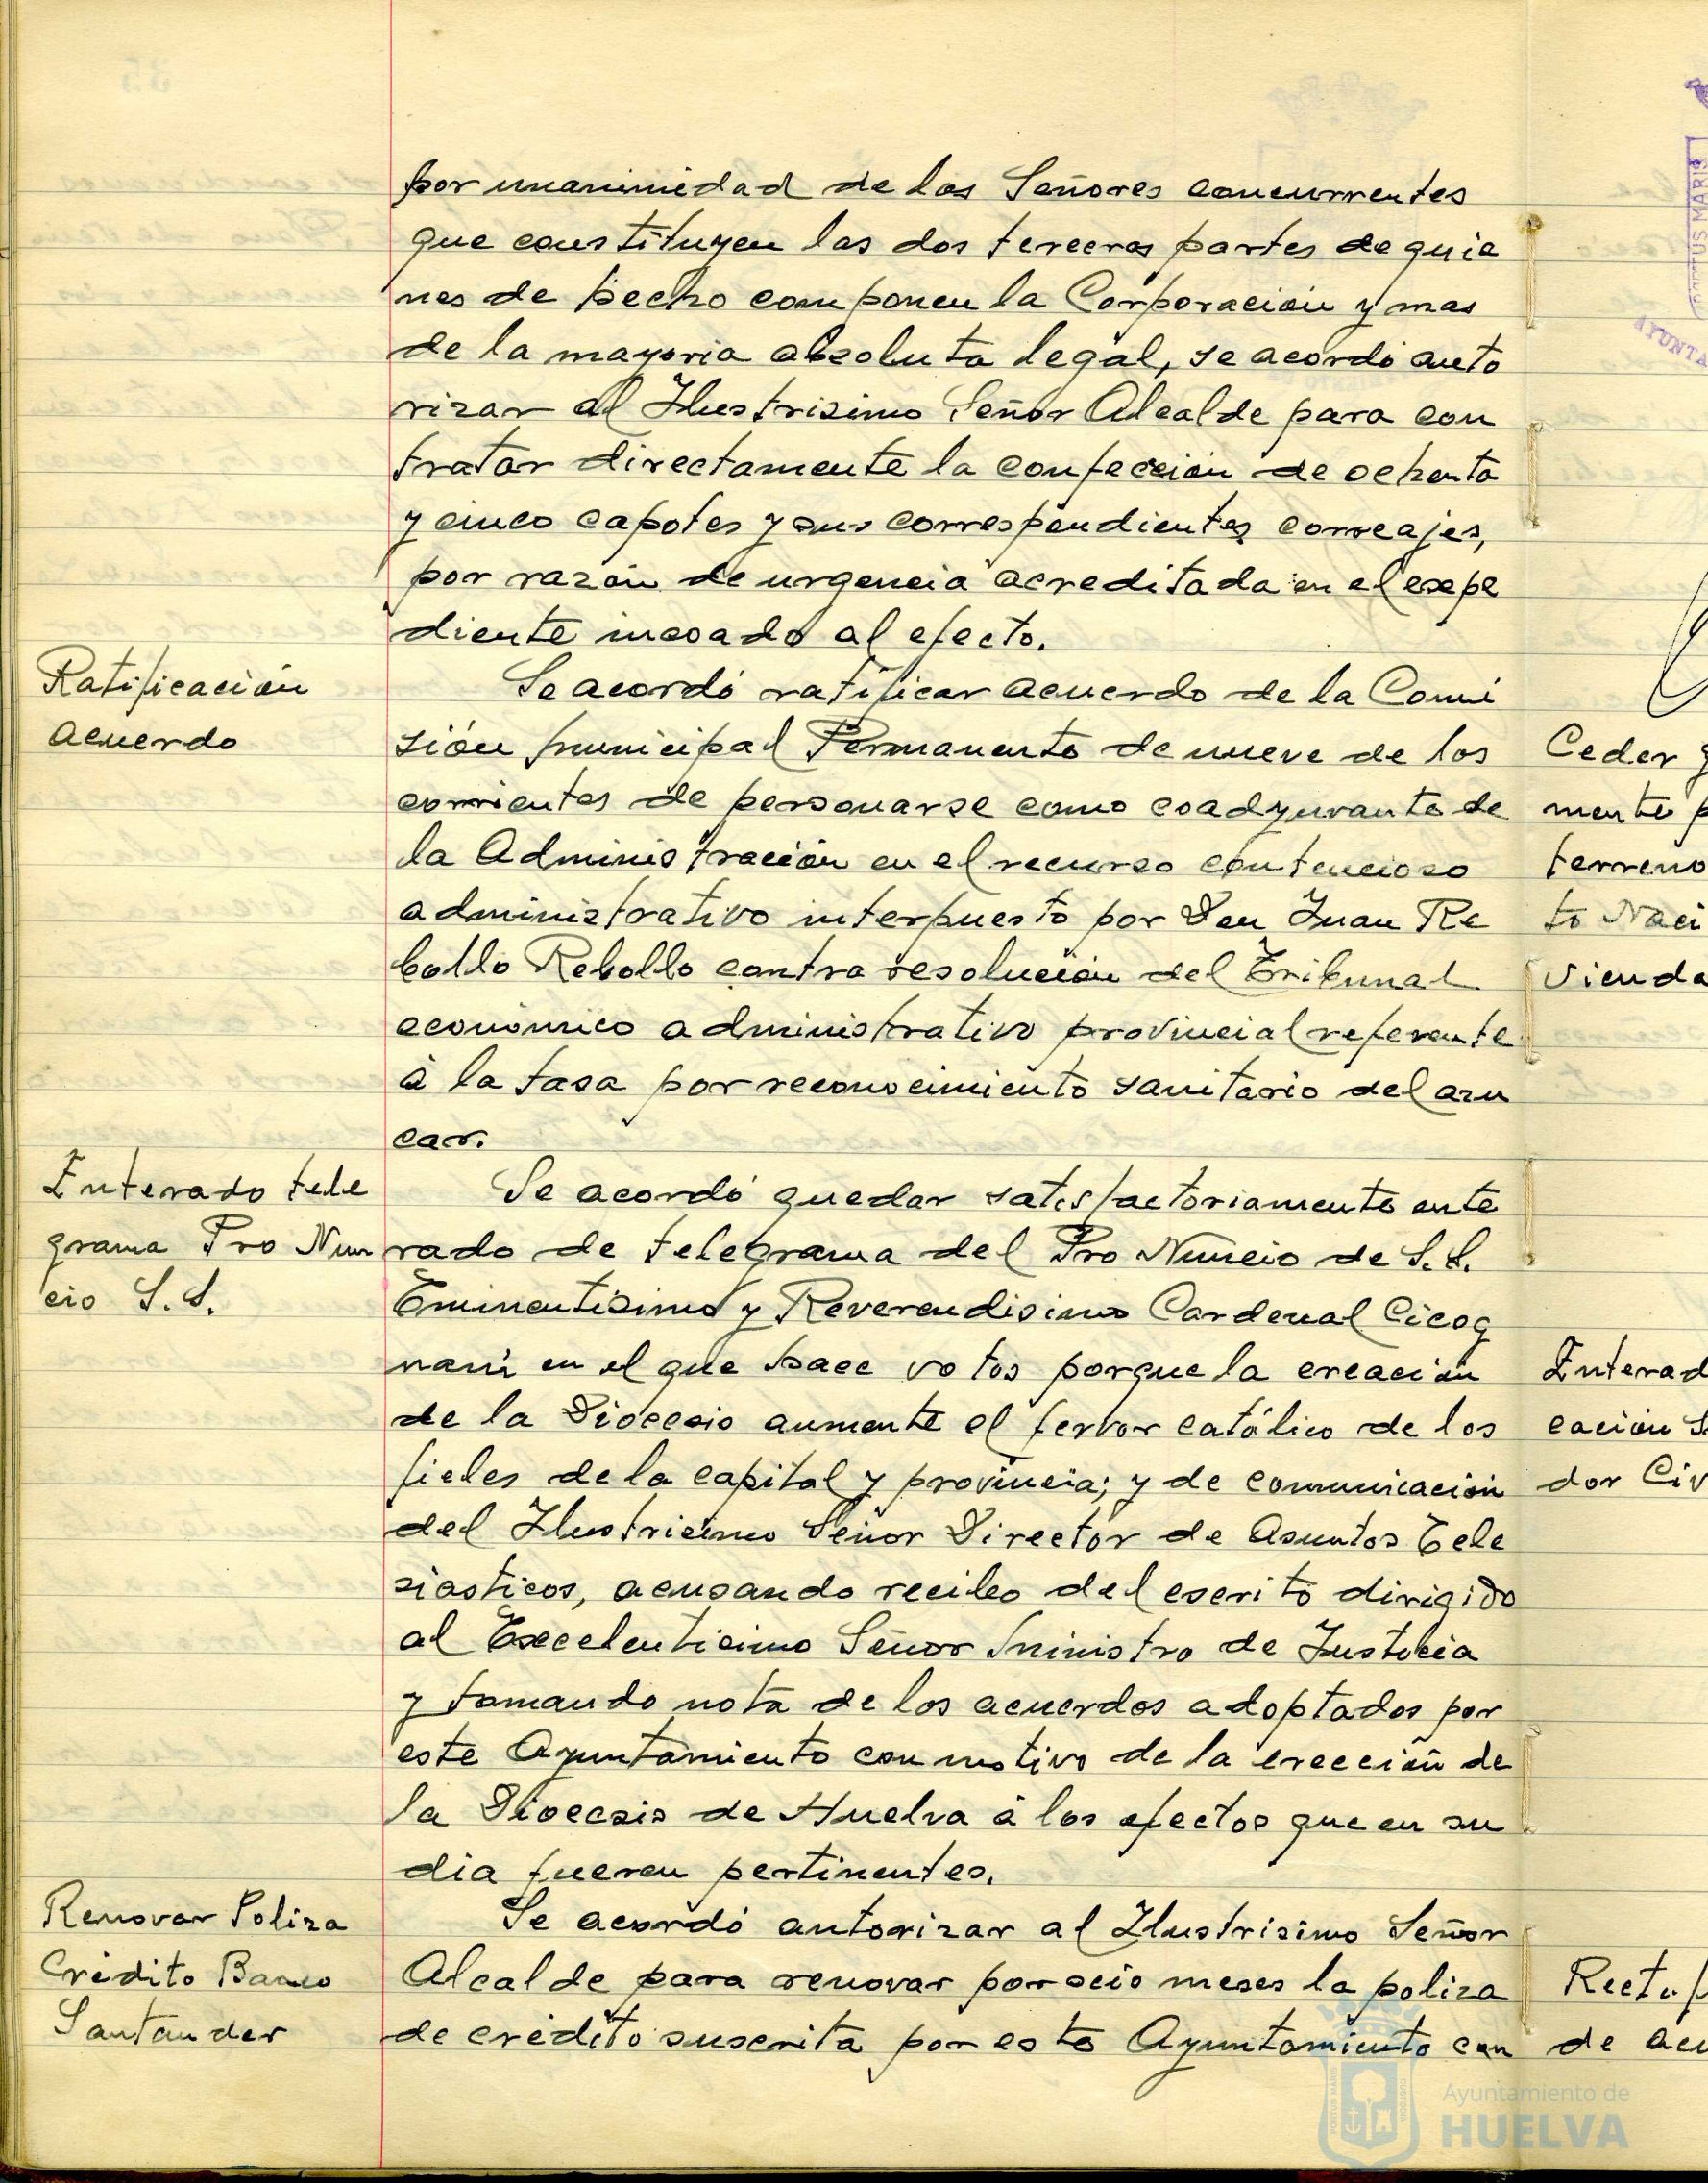 por unanimidad de los Señores concurrentes
que constituyen las dos terceras partes de quie
nes de hecho componen la Corporación y mas
de la mayoria absoluta legal, se acordó auto
rizar al Ilustrisimo Señor Alcalde para con
tratar directamente la confección de ochenta
y cinco capotes y sus correspondientes correajes,
por razón de urgencia acreditada en el expe
diente incoado al efecto.
Ratificación
Acuerdo
Se acordó ratificar acuerdo de la Comi
sión municipal Permanente de nueve de los
corrientes de personarse como coadyuvante de
la Administración en el recurso contencioso
administrativo interpuesto por Don Juan Re
bollo Rebollo contra resolución del Tribunal
económico administrativo provincial referente
á la tasa por reconocimiento sanitario del azu
car.
Enterado tele
grama Pro Nun
cio S.S.
Se acordó quedar satisfactoriamente ente
rado de telegrama del Pro Nuncio de S.S.
Eminentisimo y Reverendisimo Cardenal Cicog
nani en el que hace votos porque la creación
de la Diocesis aumente el fervor católico de los
fieles de la capital y provincia; y de comunicación
del Ilustrisimo Señor Director de Asuntos Ecle
siasticos, acusando recibo del escrito dirigido
al Excelentisimo Señor Ministro de Justicia
y tomando nota de los acuerdos adoptados por
este Ayuntamiento con motivo de la erección de
la Diocesis de Huelva á los efectos que en su
dia fueren pertinentes.
Renovar Poliza
Crédito Banco
Santander
Se acordó autorizar al Ilustrisimo Señor
Alcalde para renovar por seis meses la poliza
de crédito suscrita por este Ayuntamiento con
Ceder
mente p
terreno
to Naci
vienda
Enterad
cación S
dor Civ
Rect.
de acu
AYUNTA
Ayuntamiento de
HUELVA